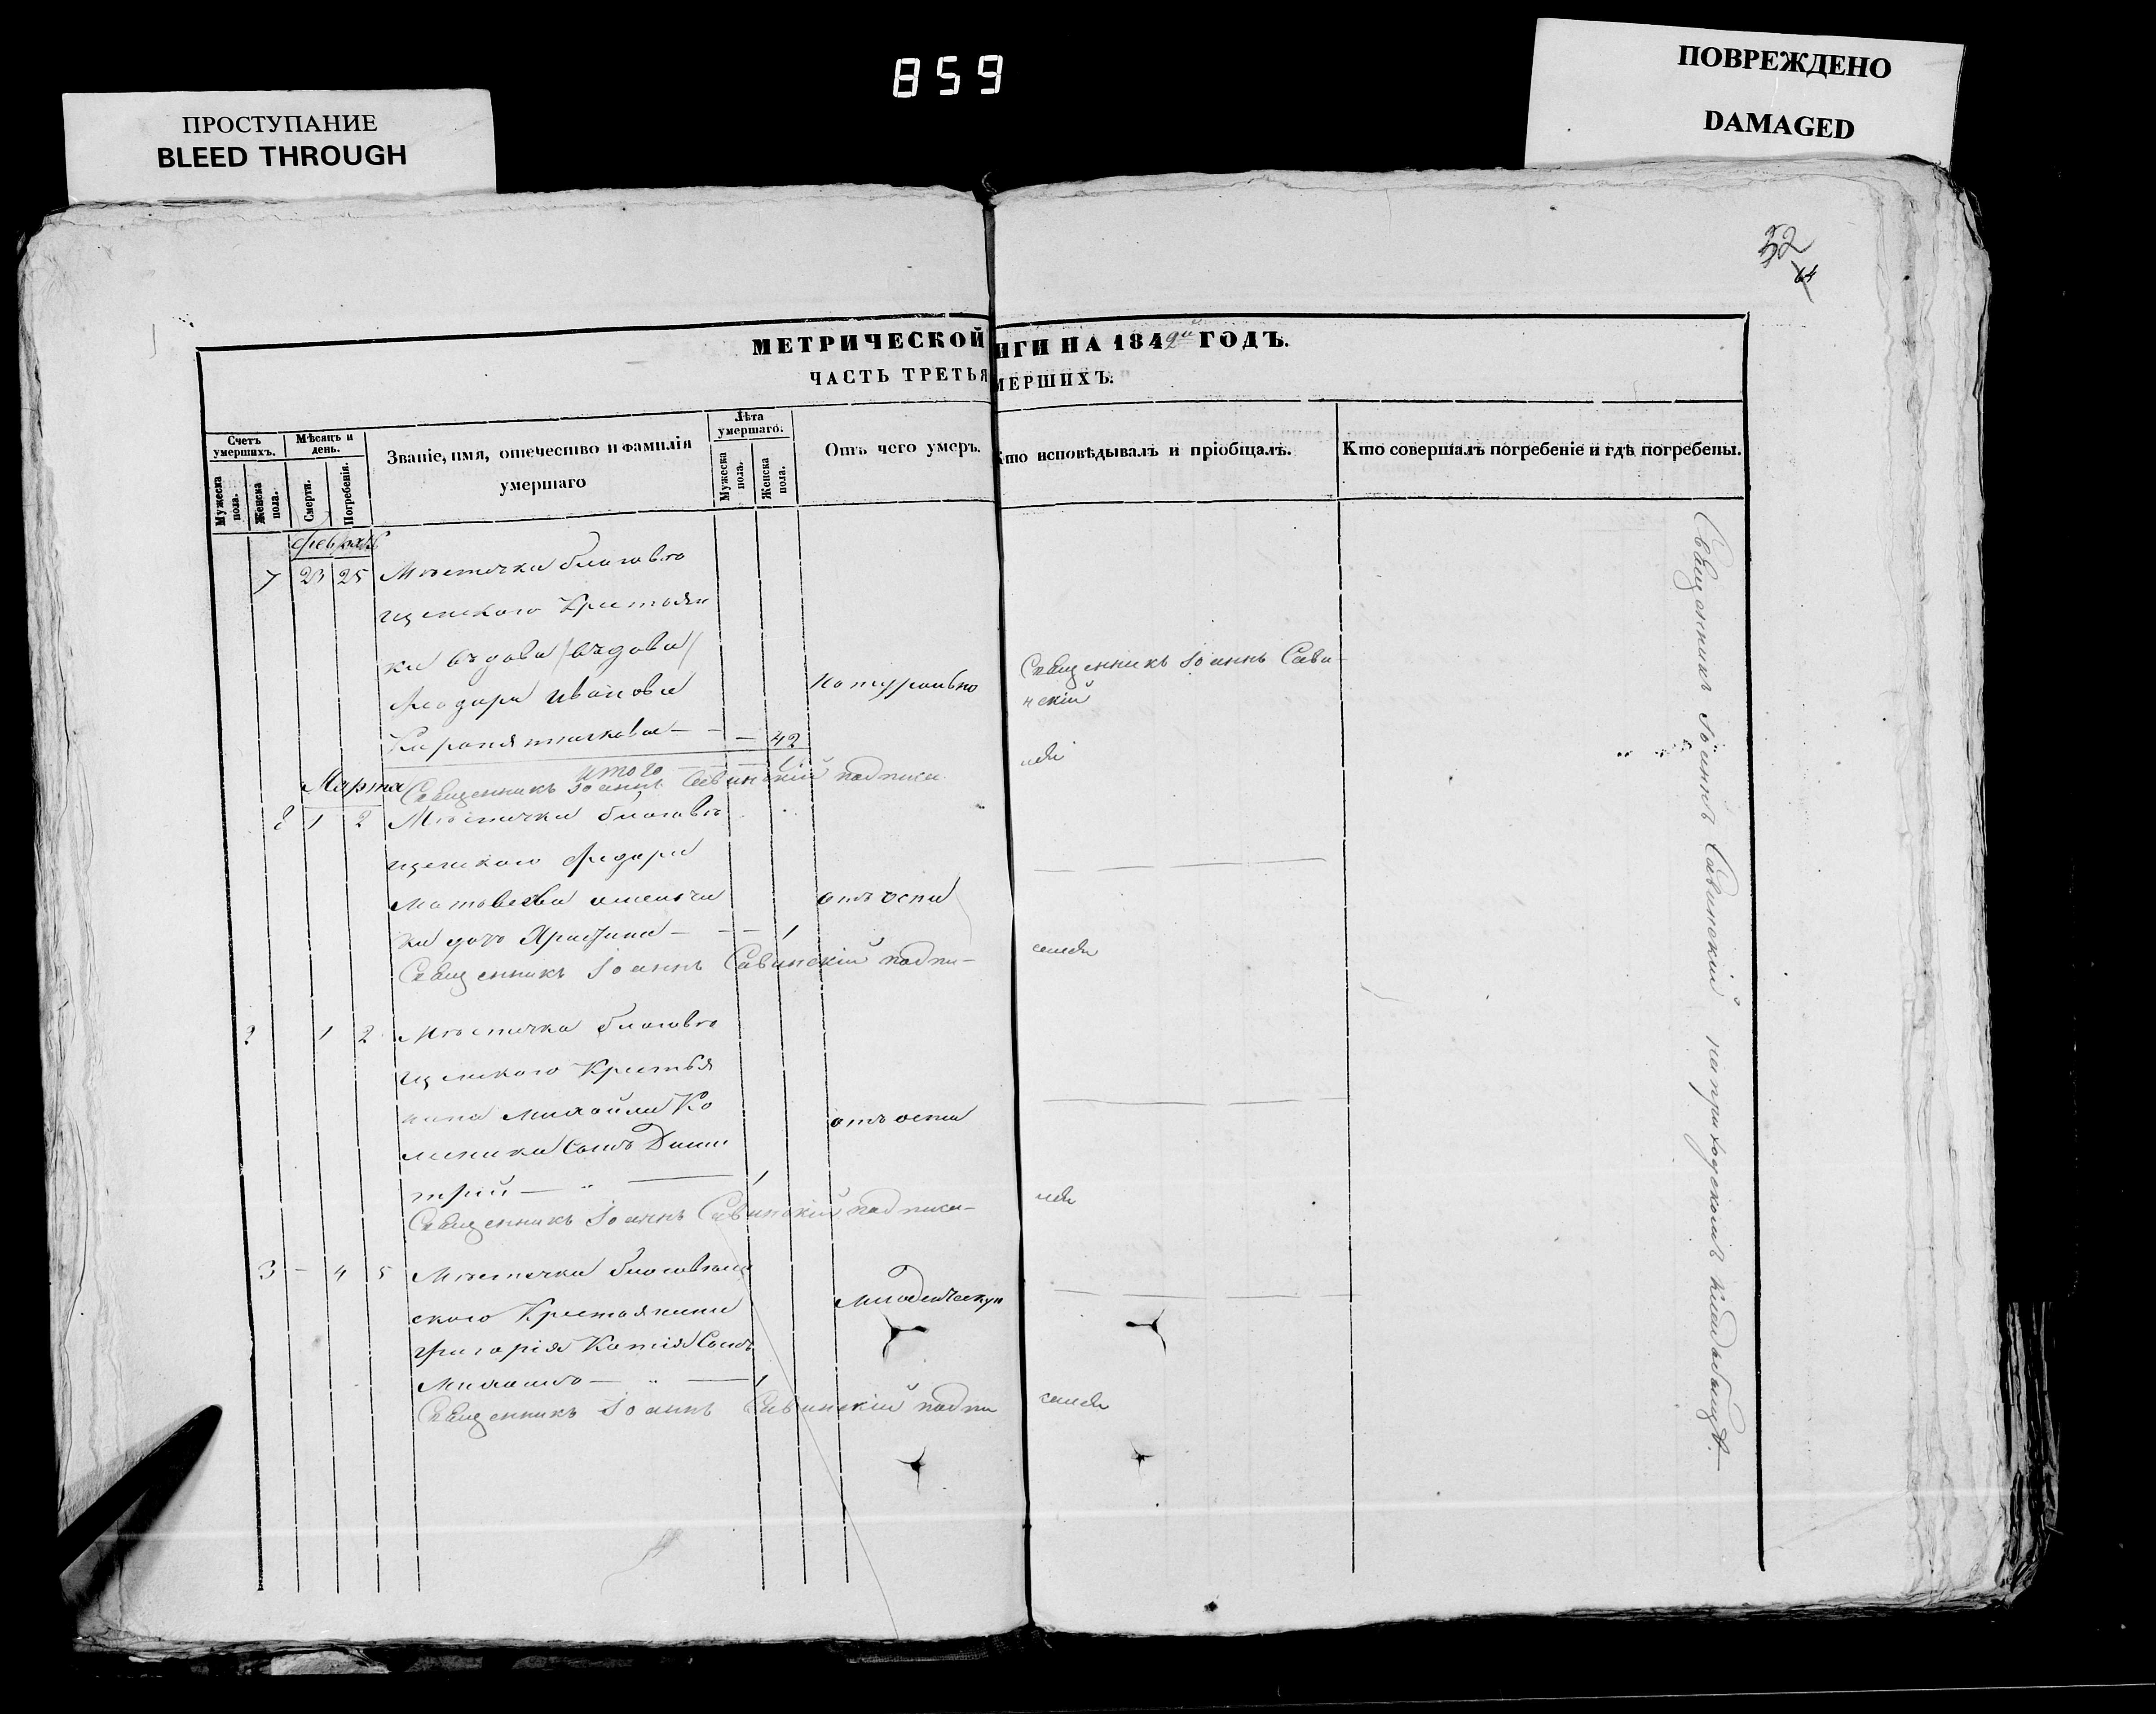 859
ПРОСТУПАНИЕ
BLEED THROUGH
ПОВРЕЖДЕНО
DAMAGED
52
64
МЕТРИЧЕСКОЙ ИГИ НА 1849 ГОДЪ.
ЧАСТЬ ТРЕТЬЯ МЕРШИХЪ.
Счетъ умершихъ.
Мужеска пола.
Женска пола.
Мѣсяцъ и день.
Смерти.
Погребенія.
Званіе, имя, отечество и фамилія умершаго
Лѣта умершаго.
Мужеска пола.
Женска пола.
Отъ чего умеръ.
Кто исповѣдывалъ и пріобщалъ.
Кто совершалъ погребеніе и гдѣ погребены.
Февраль
7 23 25 Мѣстечка Благовѣ
щенского Крестьян
ки вдова /вдова/
Ивановa натурально Священникъ Іоаннъ Сави-
нскій
42
итого
Священникъ Іоаннъ Савинскій подписа лъ
Марта
1 2 Мѣстечка Благовѣ
щенского Федора
Матвеева
ка дочь — 1 отъ оспы
Священникъ Іоаннъ Савинскій подпи- салъ
2 1 2 Мѣстечка Благовѣ
щенского Крестья
нина Михайла Ко
сынъ Дими отъ оспы
трій — 1
Священникъ Іоаннъ Савинскій подписа- лъ
3 - 4 5 Мѣстечка Благовѣщен
ского Крестьянина
Григорія сынъ
Михаилъ — 1
Священникъ Іоаннъ Савинскій подпи салъ
Священникъ Іоаннъ Савинскій на приходскомъ кладбищѣ